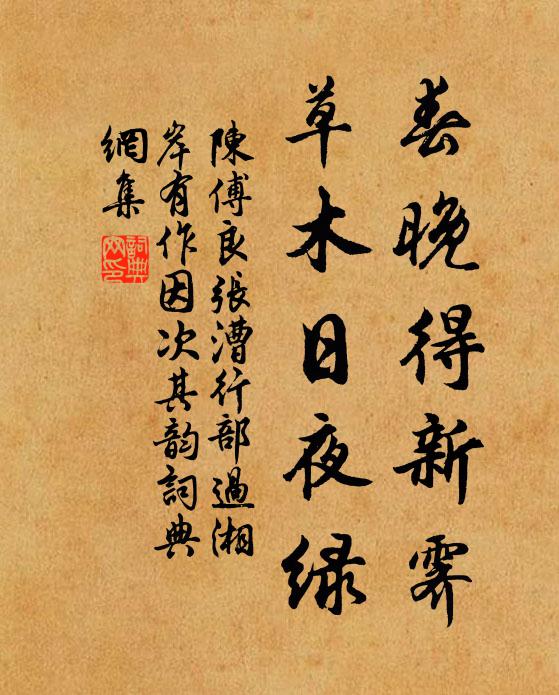 春晚得新霽
草木日夜緑
陳傅良張漕行部過湘
岸有作因次其韵詞典
網集
詞典網印